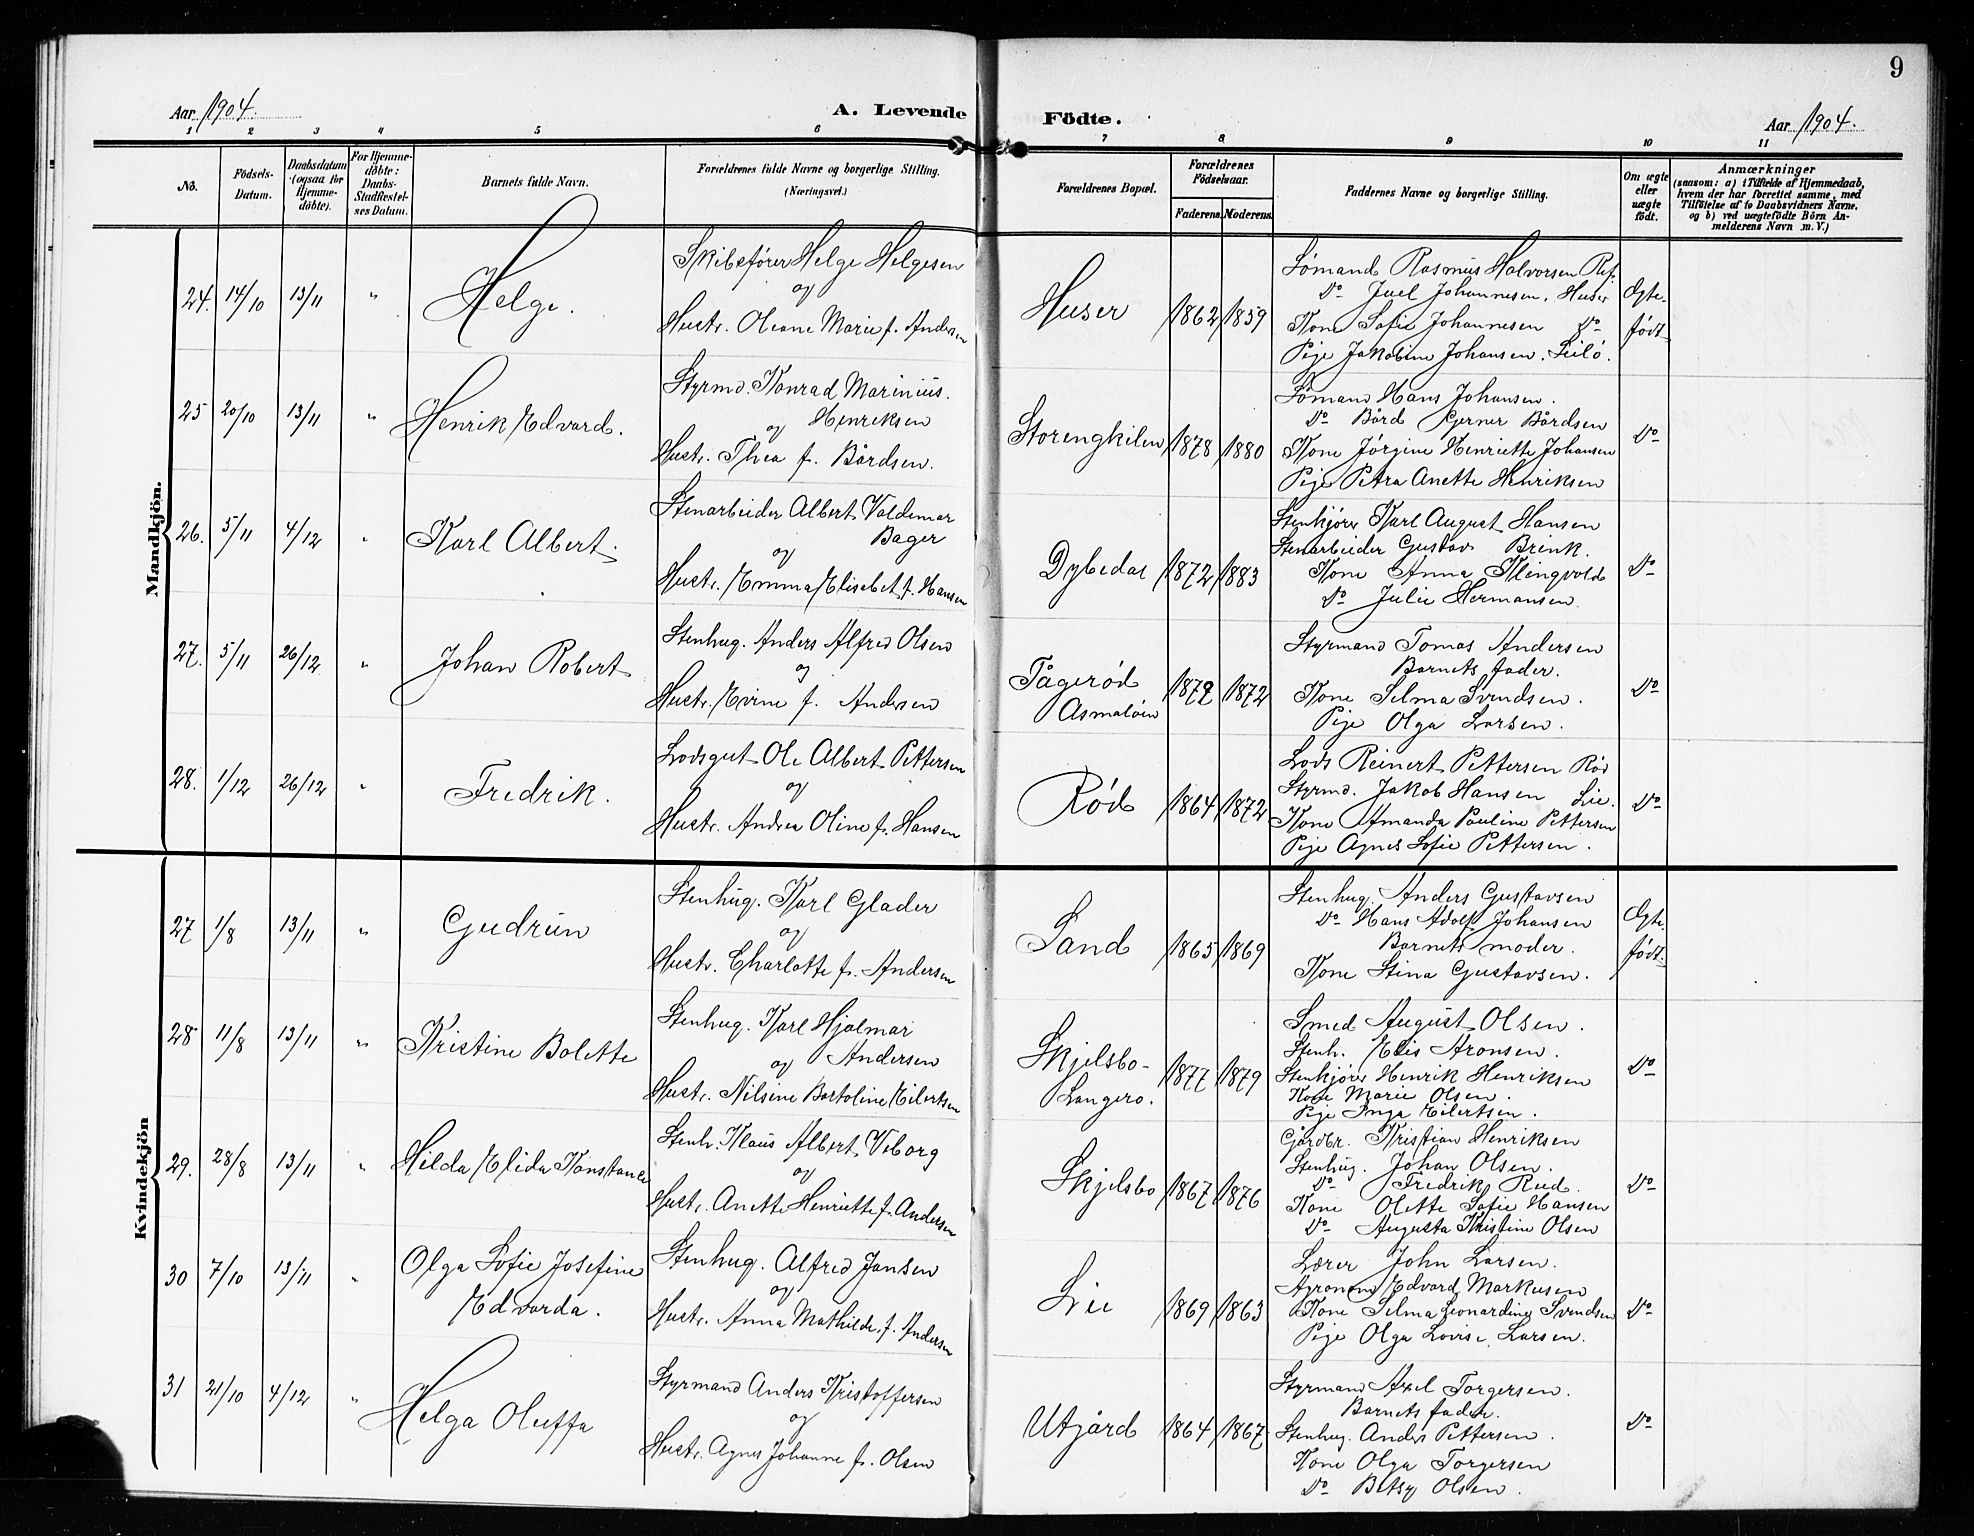 9
Aar 1904.
A. Levende Födte.
Aar 1904.
1 2 3 4 5 6 7 8 9 10 11
No.
Födsels-Datum.
Daabsdatum (ogsaa for Hjemme-döbte).
For Hjemme-döbte: Daabs-Stadfæstel-ses Datum.
Barnets fulde Navn.
Forældrenes fulde Navne og borgerlige Stilling. (Næringsvei.)
Forældrenes Bopæl.
Forældrenes Födselsaar.
Faderens. Moderens.
Faddernes Navne og borgerlige Stilling.
Om ægte eller uægte födt.
Anmærkninger
(saasom: a) i Tilfælde af Hjemmedaab,
hvem der har forrettet samme, med
Tilföielse af to Daabsvidners Navne,
og b) ved uægtefödte Börn An-
melderens Navn m. V.)
Mandkjön.
24. 14/10 13/11 " Helge.
Skibsfører Helge Helgesen
og
Hustr. Oleane Marie f. Andersen
Huser 1862 1859
Sømand Rasmus Halvorsen Ref.
Do Juel Johannesen. Huser
Kone Sofie Johannesen Do
Pige Jakobine Johansen. Leilö.
Ægte-
født
25 20/10 13/11 " Henrik Edvard.
Styrmd. Konrad Marinius.
og Henriksen
Hustr. Thea f. Bårdsen.
Storengkilen 1878 1880
Sømand Hans Johansen.
Do Bård Gerner Bårdsen
Kone Jørgine Henriette Johansen
Pige Petra Anette Henriksen
Do
26. 5/11 4/12 " Karl Albert.
Stenarbeider Albert Valdemar
og Bager
Hustr. Emma Elisebet f. Hansen
Dybedal 1872 1883
Stenkjører Karl August Hansen
Stenarbeider Gustav Brink.
Kone Anna Klingvold
Do Julie Hermansen.
Do
27. 5/11 26/12 " Johan Robert
Stenhug. Anders Alfred Olsen
og
Hustr. Evine f. Andersen
Tågerød
Asmaløen 1872 1872
Styrmand Tomas Andersen
Barnets fader.
Kone Selma Svendsen.
Pige Olga Larsen.
Do
28. 1/12 26/12 " Fredrik.
Lodsgut Ole Albert Pettersen
og
Hustr. Andrea Oline f. Hansen
Rød 1864 1872
Lods Reinert Pettersen Rød
Styrmd. Jakob Hansen Lie.
Kone Amanda Pauline Pettersen
Pige Agnes Sofie Pettersen.
Do
Kvindekjön
27 1/8 13/11 " Gudrun
Stenhug. Karl Glader
og
Hustr. Charlotte f. Andersen
Sand 1865 1869
Stenhug. Anders Gustavsen
Do Hans Adolf Johansen
Barnets moder.
Kone Stina Gustavsen.
Ægte-
født.
28 11/8 13/11 " Kristine Bolette
Stenhug. Karl Hjalmar
og Andersen
Hustr. Nilsine Bartoline Eilertsen
Skjelsbo-
Langero. 1877 1879
Smed August Olsen.
Stenh. Elis Aronsen.
Stenkjører Henrik Henriksen
Kone Marie Olsen.
Pige Inga Eilertsen.
Do
29. 28/8 13/11 " Hilda Elida Konstance
Stenh. Klaus Albert Viborg
og
Hustr. Anette Henriette f. Andersen
Skjelsbo 1867 1876
Gårdbr. Kristian Henriksen
Stenhug. Johan Olsen.
Do Fredrik Rud.
Kone Olette Sofie Hansen
Do Augusta Kristine Olsen
Do
30 7/10 13/11 " Olga Sofie Josefine
Edvarda.
Stenhug. Alfred Jansen
og
Hustr. Anna Mathilde f. Andersen
Lie 1869 1863
Lærer John Larsen.
Agronom Edvard Markusen
Kone Selma Leonardine Svendsen
Pige Olga Lovise Larsen.
Do
31 21/10 4/12 " Helga Oluffa
Styrmand Anders Kristoffersen
og
Hustr. Agnes Johanne f. Olsen
Utgård 1864 1867
Styrmand Axel Torgersen.
Barnets fader.
Stenhug. Anders Pettersen.
Kone Olga Torgersen
Do Betsy Olsen.
Do